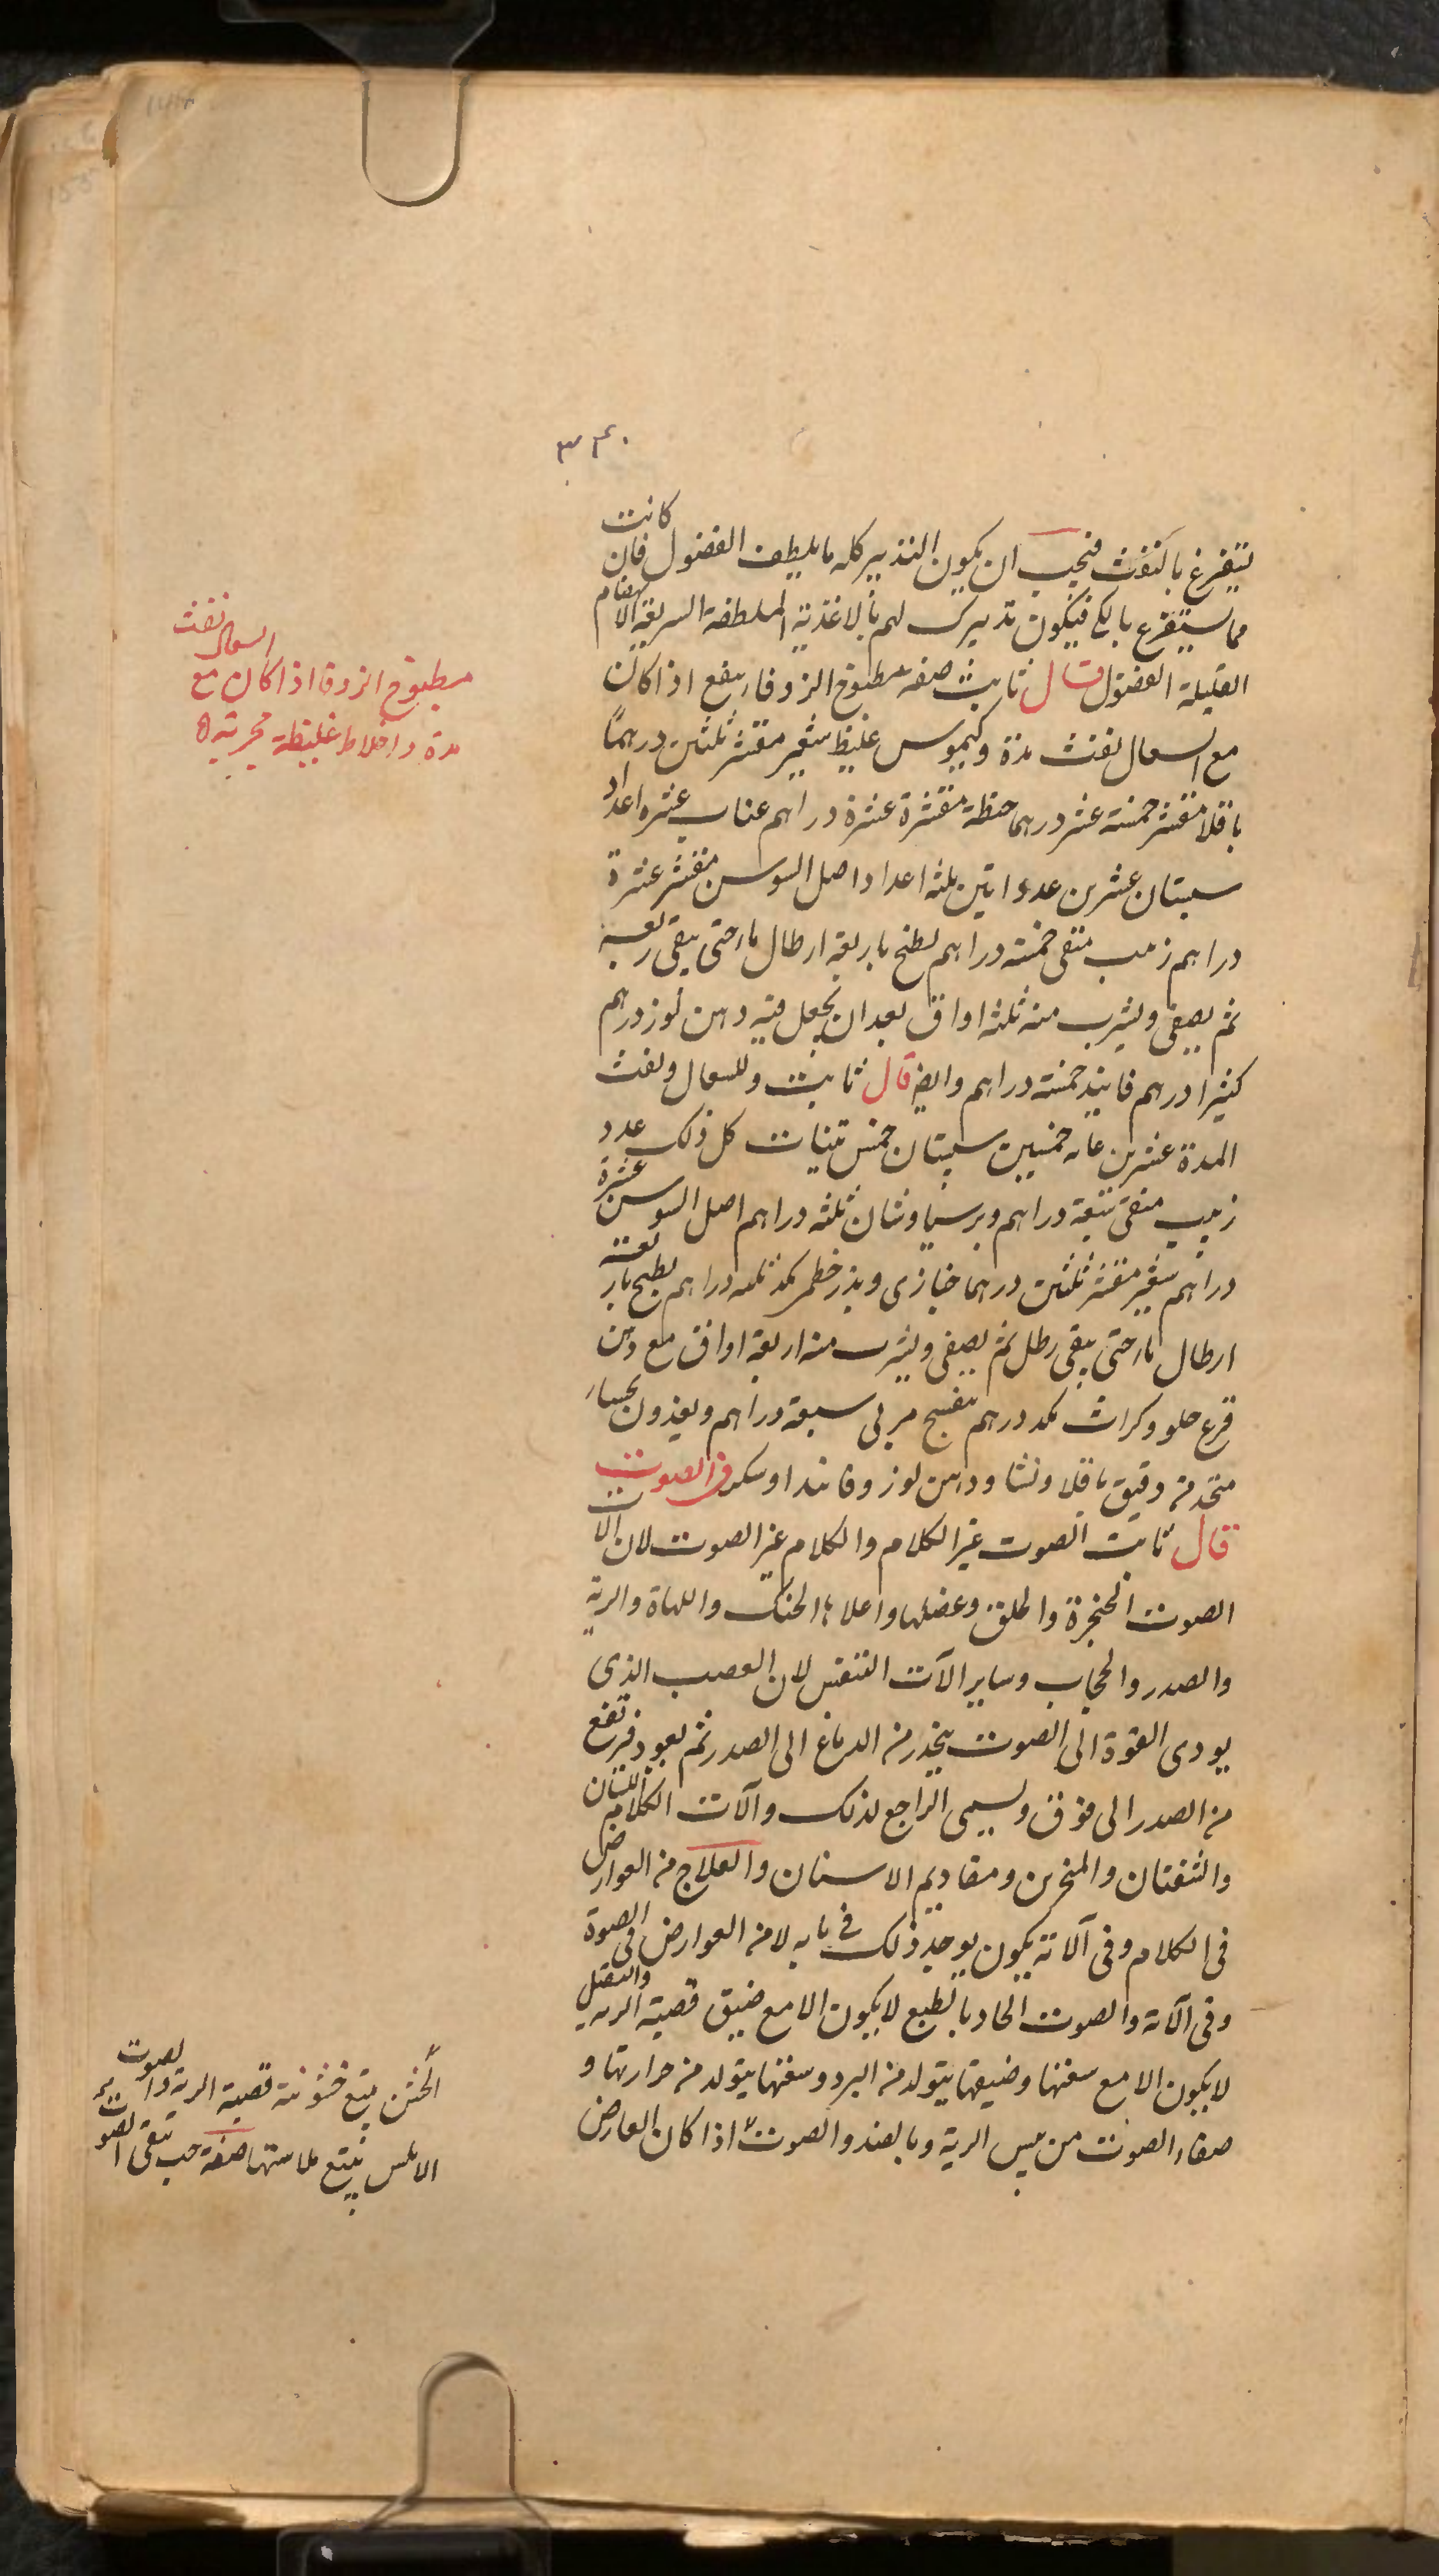 ٣٤٠
يتفرغ بالنفث فيجب ان يكون التدبير كله ما يلطف الفضول فان كانت
مما يستفرع بالكى فيكون تدبيرك لهم بالاغذية الملطفة السريعة الانهضام
القليلة الفضول قال ثابت صفه مطبوخ الزوفا ينفع اذا كان
مع السعال نفث مدة وكيموس غليظ شعير مقشر ثلثين درهماً
باقلا مقشر خمسة عشر درهما حنطة مقشرة عشرة دراهم عناب عشره اعداد
سبستان عشرين عددا تين ثلثه اعداد اصل السوسن مقشر عشرة
دراهم زبيب منقى خمسة دراهم يطبخ باربعة ارطال ماء حتى يبقى ربعه
ثم يصفى ويشرب منه ثلثه اواق بعد ان يجعل فيه دهن لوز درهم
كثيرا درهم فانيد خمسة دراهم وايضا قال ثابت وللسعال ونفث
المدة عشرين عنابه خمسين سبستان خمس تينات كل ذلك عدد
زبيب منقى سبعة دراهم وبرسياوشان ثلثه دراهم اصل السوسن عشرة
دراهم شعير مقشر ثلثين درهما خبازى وبذر خطمى مكد ثلثه دراهم يطبخ باربعة
ارطال ماء حتى يبقى رطل ثم يصفى ويشرب منه اربعة اواق مع دهن
قرع حلو وكراث مكد درهم بنفسج مربى سبعة دراهم ويغذون بحساء
متخد من دقيق باقلا ونشا ودهن لوز وفانيد او سكر فى الصوت
قال ثابت الصوت غير الكلام والكلام غير الصوت لان الات
الصوت الحنجرة والحلق وعضلها واعلاء الحنك واللهاة والرية
والصدر والحجاب وساير الآت التنفس لان العصب الذى
يودى القوة الى الصوت ينحدر من الدماغ الى الصدر ثم يعود فيرتفع
من الصدر الى فوق ويسمى الراجع لذلك وآلات الكلام اللسان
والشفتان والمنخرين ومقاديم الاسنان والعلاج من العوارض
فى الكلام وفى آلاته يكون يوجد ذلك فى بابه لا من العوارض فى الصوة
وفى آلاته والصوت الحاد بالطبع لا يكون الا مع ضيق قصبة الريه والثقيل
لا يكون الا مع سعتها وضيقها يتولد من البرد وسعتها يتولد من حرارتها و
صفاء الصوت من يبس الرية وبالضد والصوت اذا كان العارض
مطبوخ الزوفا اذا كان مع السعال نفث
مدة واخلاط غليظة مجربة
الخشن يتبع خشونة قصبة الرية والصوت
الاملس يتبع ملاستها صفة حب ينقى الصوت